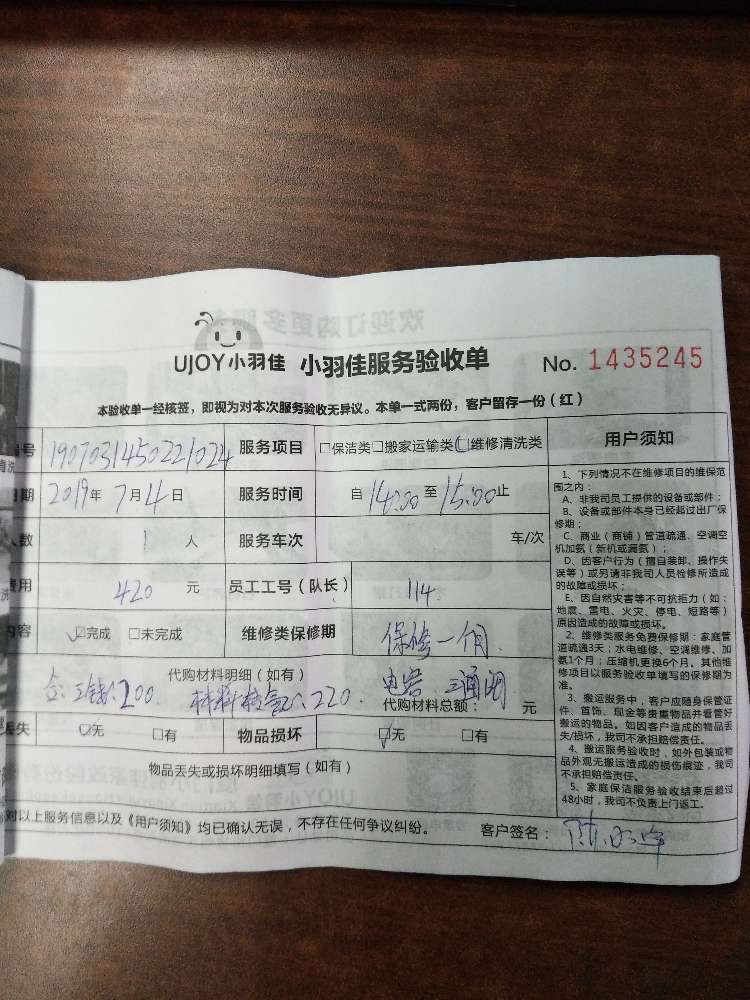 UJOY小羽佳 小羽佳服务验收单 No. 1435245
本验收单一经核签，即视为对本次服务验收无异议。本单一式两份，客户留存一份（红）
号 1907031450221024 服务项目 □保洁类□搬家运输类□维修清洗类
期 2019年 7月4日 服务时间 自14:00至15:00止
人数 1 人 服务车次 车/次
费用 420 元 员工工号（队长） 114
内容 ☑完成 □未完成 维修类保修期 保修一个月
代购材料明细（如有）
200 材料 220
代购材料总额： 元
丢失 ☑无 □有 物品损坏 ☑无 □有
物品丢失或损坏明细填写（如有）
对以上服务信息以及《用户须知》均已确认无误，不存在任何争议纠纷。 客户签名：
用户须知
1、下列情况不在维修项目的维保范
围之内：
A、非我司员工提供的设备或部件；
B、设备或部件本身已经超过出厂保
修期；
C、商业（商铺）管道疏通、空调空
机加氨（新机或漏氨）；
D、因客户行为（擅自装卸、操作失
误等）或另请非我司人员检修所造成
的故障或损坏；
E、因自然灾害等不可抗拒力（如：
地震、雷电、火灾、停电、短路等）
原因造成的故障或损坏。
2、维修类服务免费保修期：家庭管
道疏通3天；水电维修、空调维修、加
氨1个月；压缩机更换6个月。其他维
修项目以服务验收单填写的保修期为
准。
3、搬运服务中，客户应随身保管证
件、首饰、现金等贵重物品并看管好
搬运的物品。如因客户造成的物品丢
失/损坏，我司不承担赔偿责任。
4、搬运服务验收时，如外包装或物
品外观无搬运造成的损伤痕迹，我司
不承担赔偿责任。
5、家庭保洁服务验收结束后超过
48小时，我司不负责上门返工。